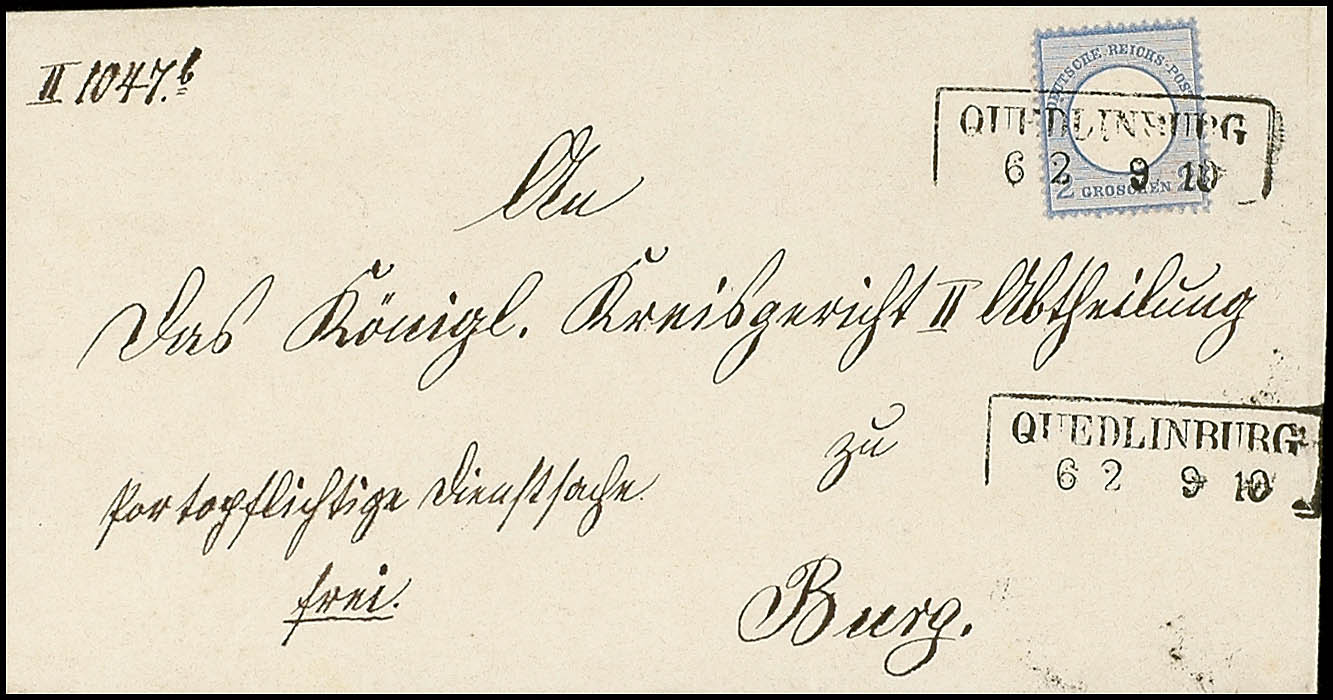 II 1047.b
DEUTSCHE REICHS-POST
QUEDLINBURG
6 2 9 10
2 GROSCHEN 2
An
Das Königl. Kreisgericht II Abtheilung
zu
QUEDLINBURG
6 2 9 10
Portopflichtige Dienstsache.
frei.
Burg.